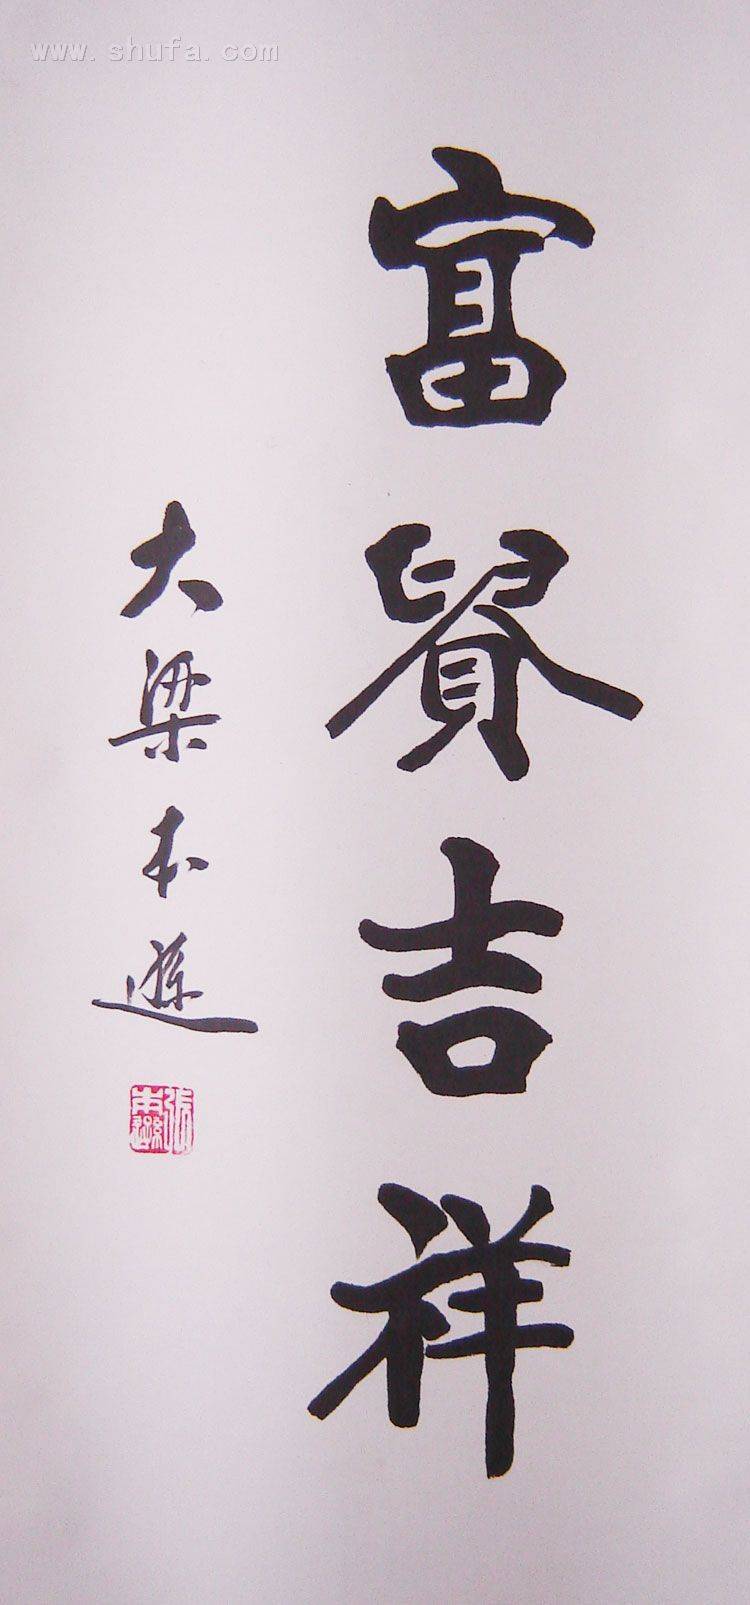 www.shufa.com
富貴吉祥
大梁本遜
張本遜